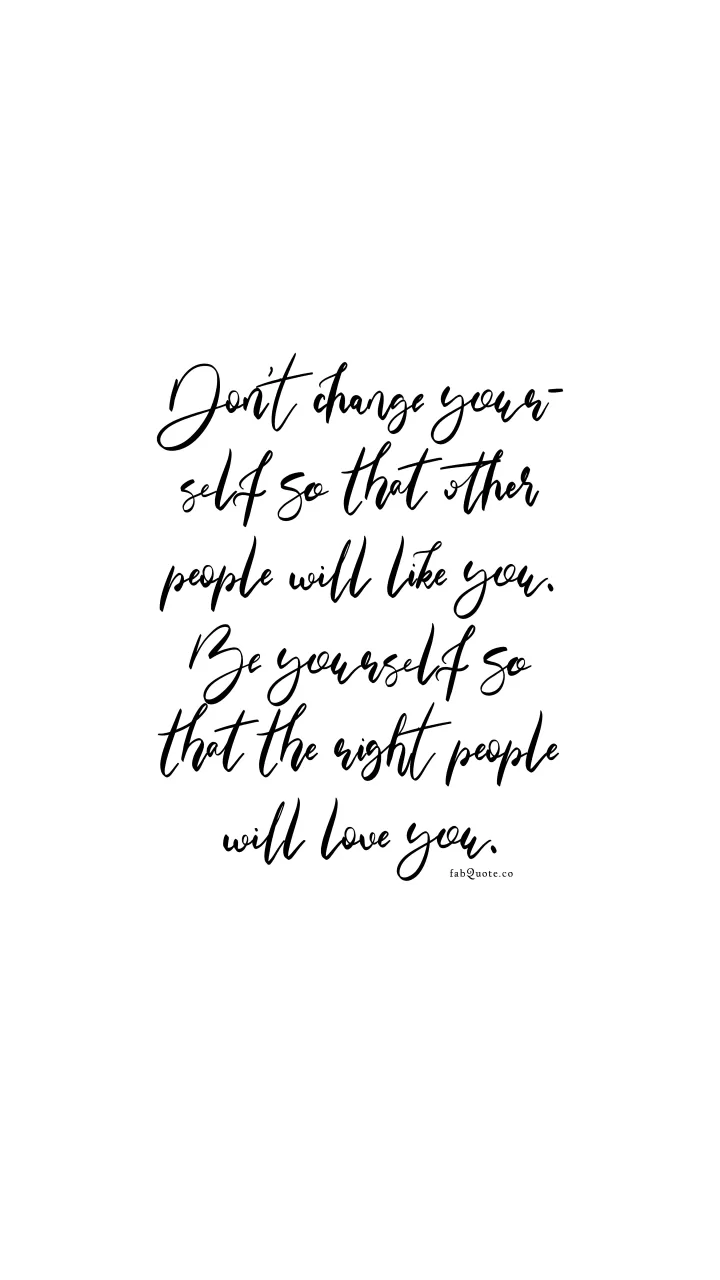 Don't change your-
self so that other
people will like you.
Be yourself so
that the right people
will love you.
fabQuote.co